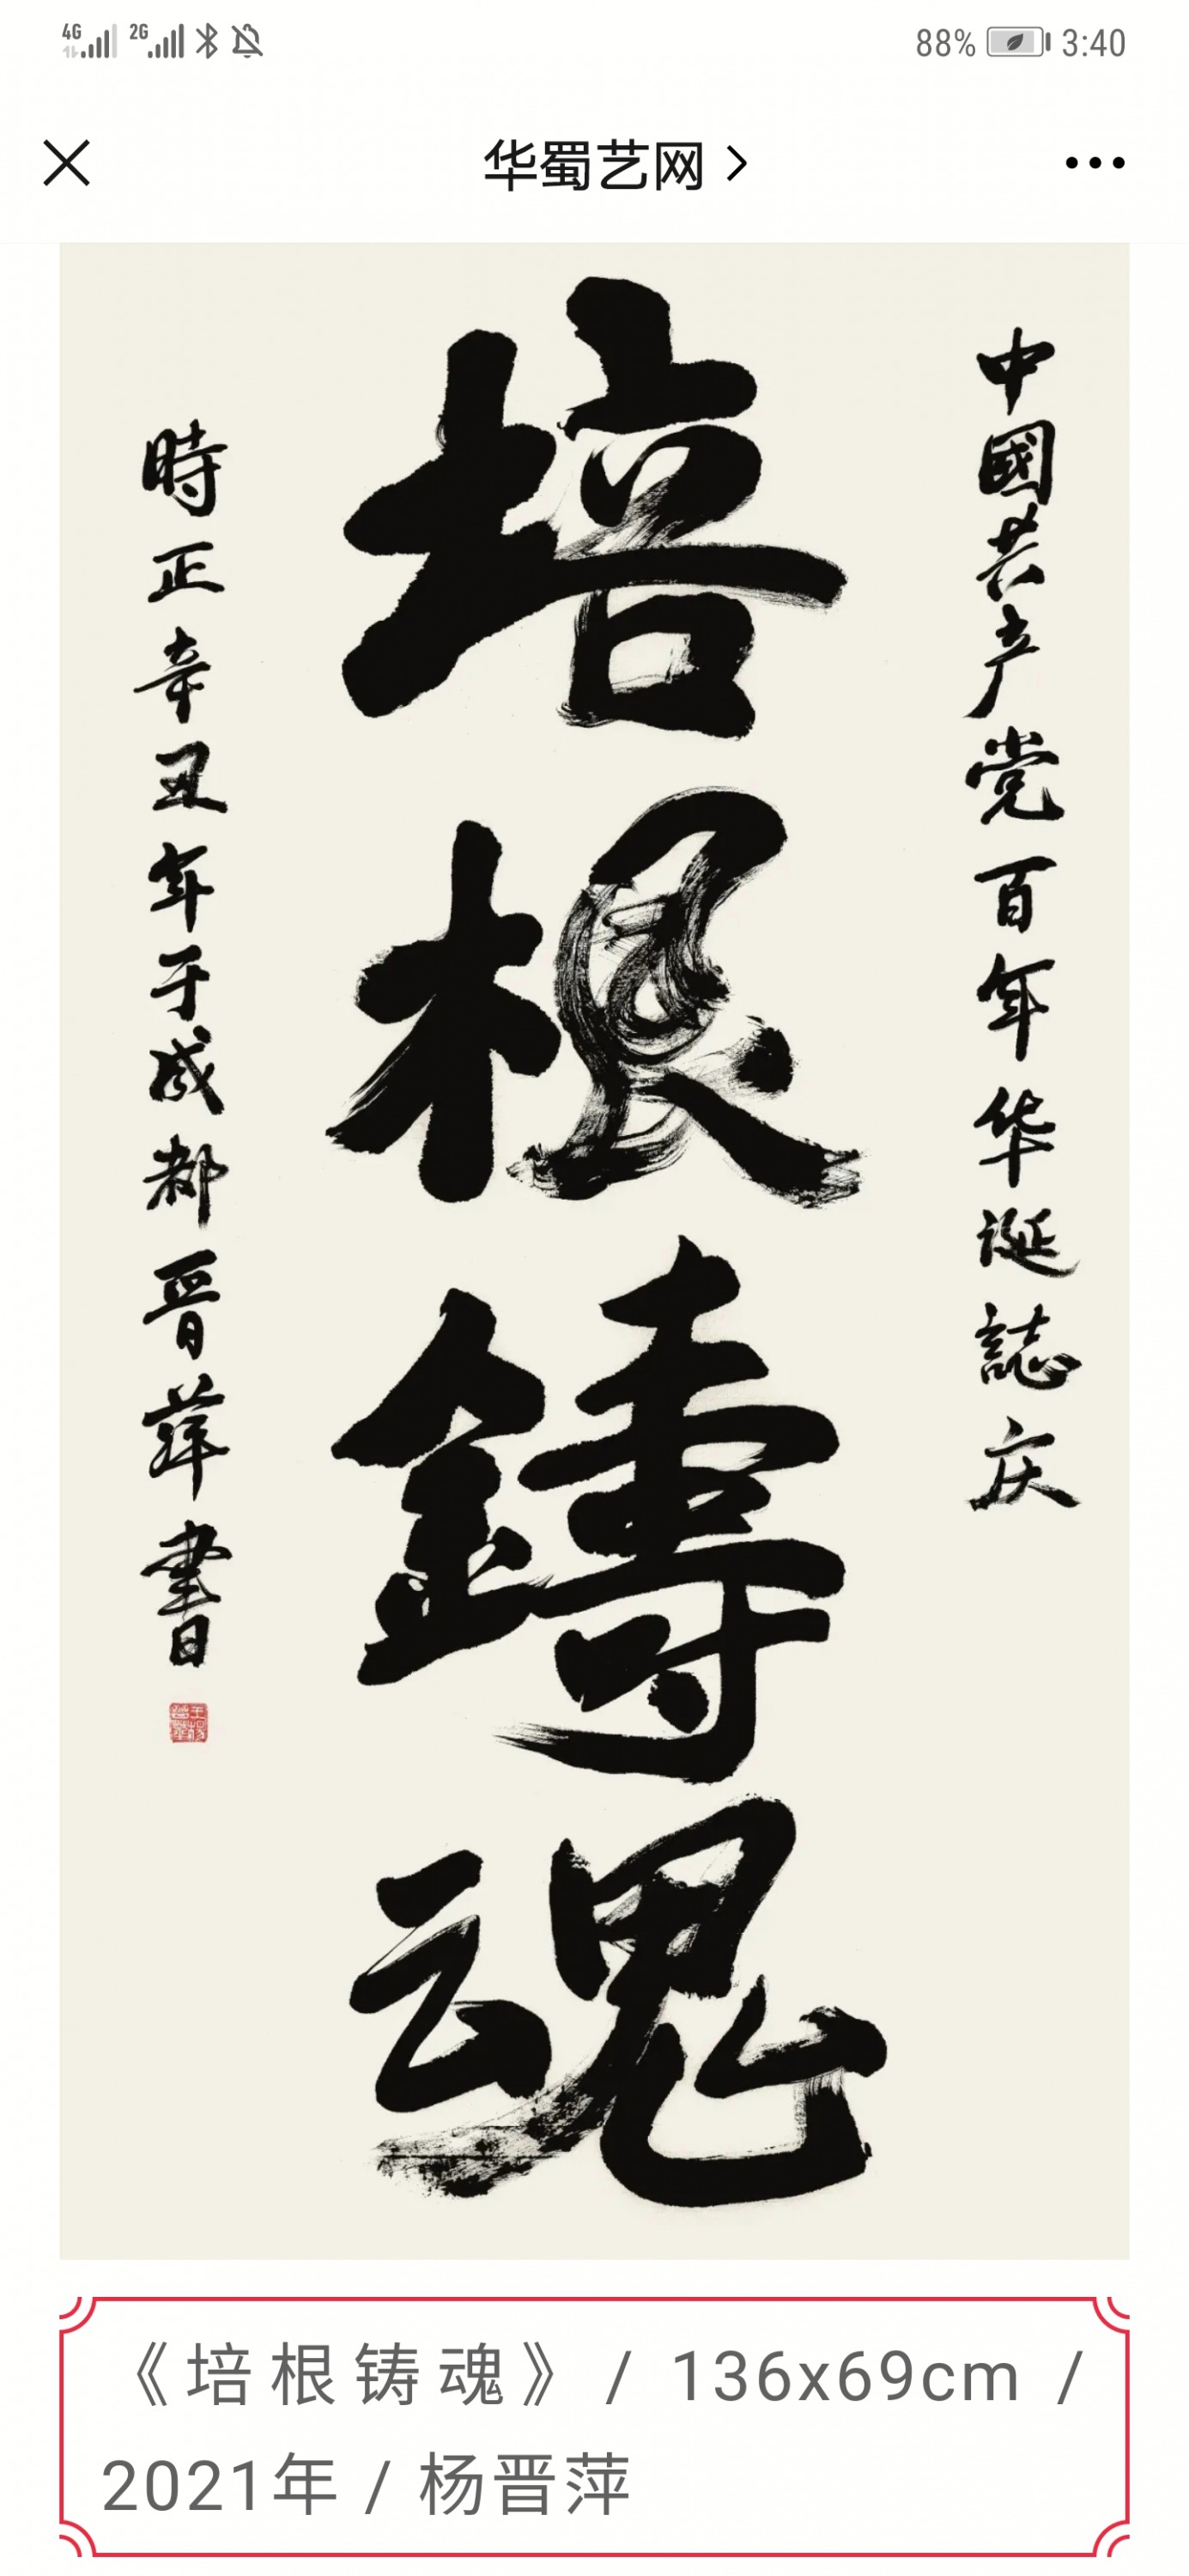 4G 2G 88% 3:40
华蜀艺网
中國共产党百年华诞誌庆
培根鑄魂
時正辛丑年于成都晋萍書
《培根铸魂》 / 136x69cm /
2021年 / 杨晋萍